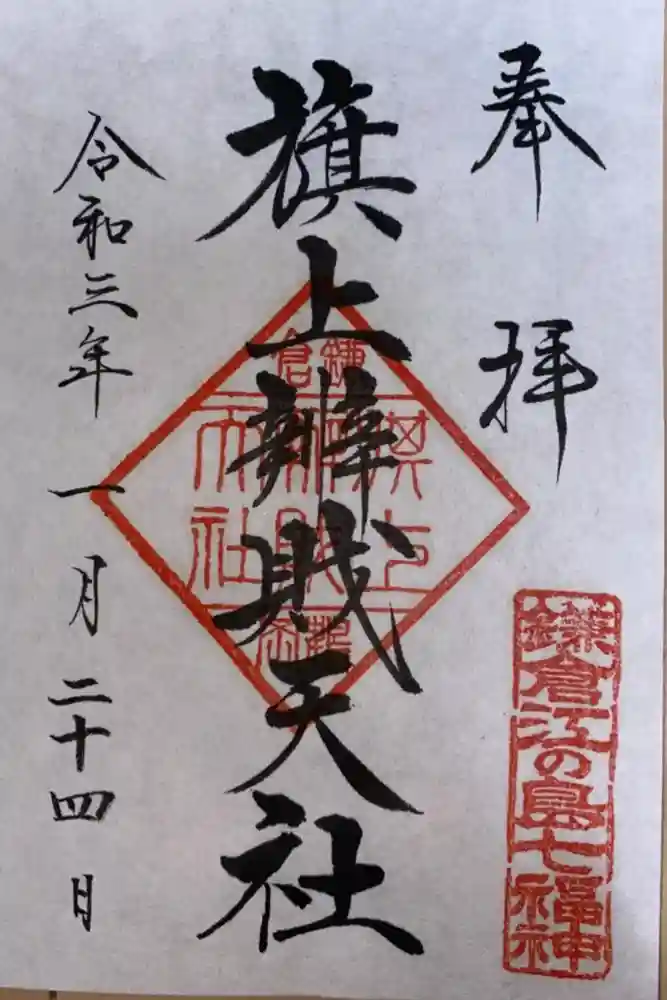 奉拝
鎌倉江の島七福神
旗上辨財天社
鎌倉
旗上
辨財
天社
令和三年一月二十四日